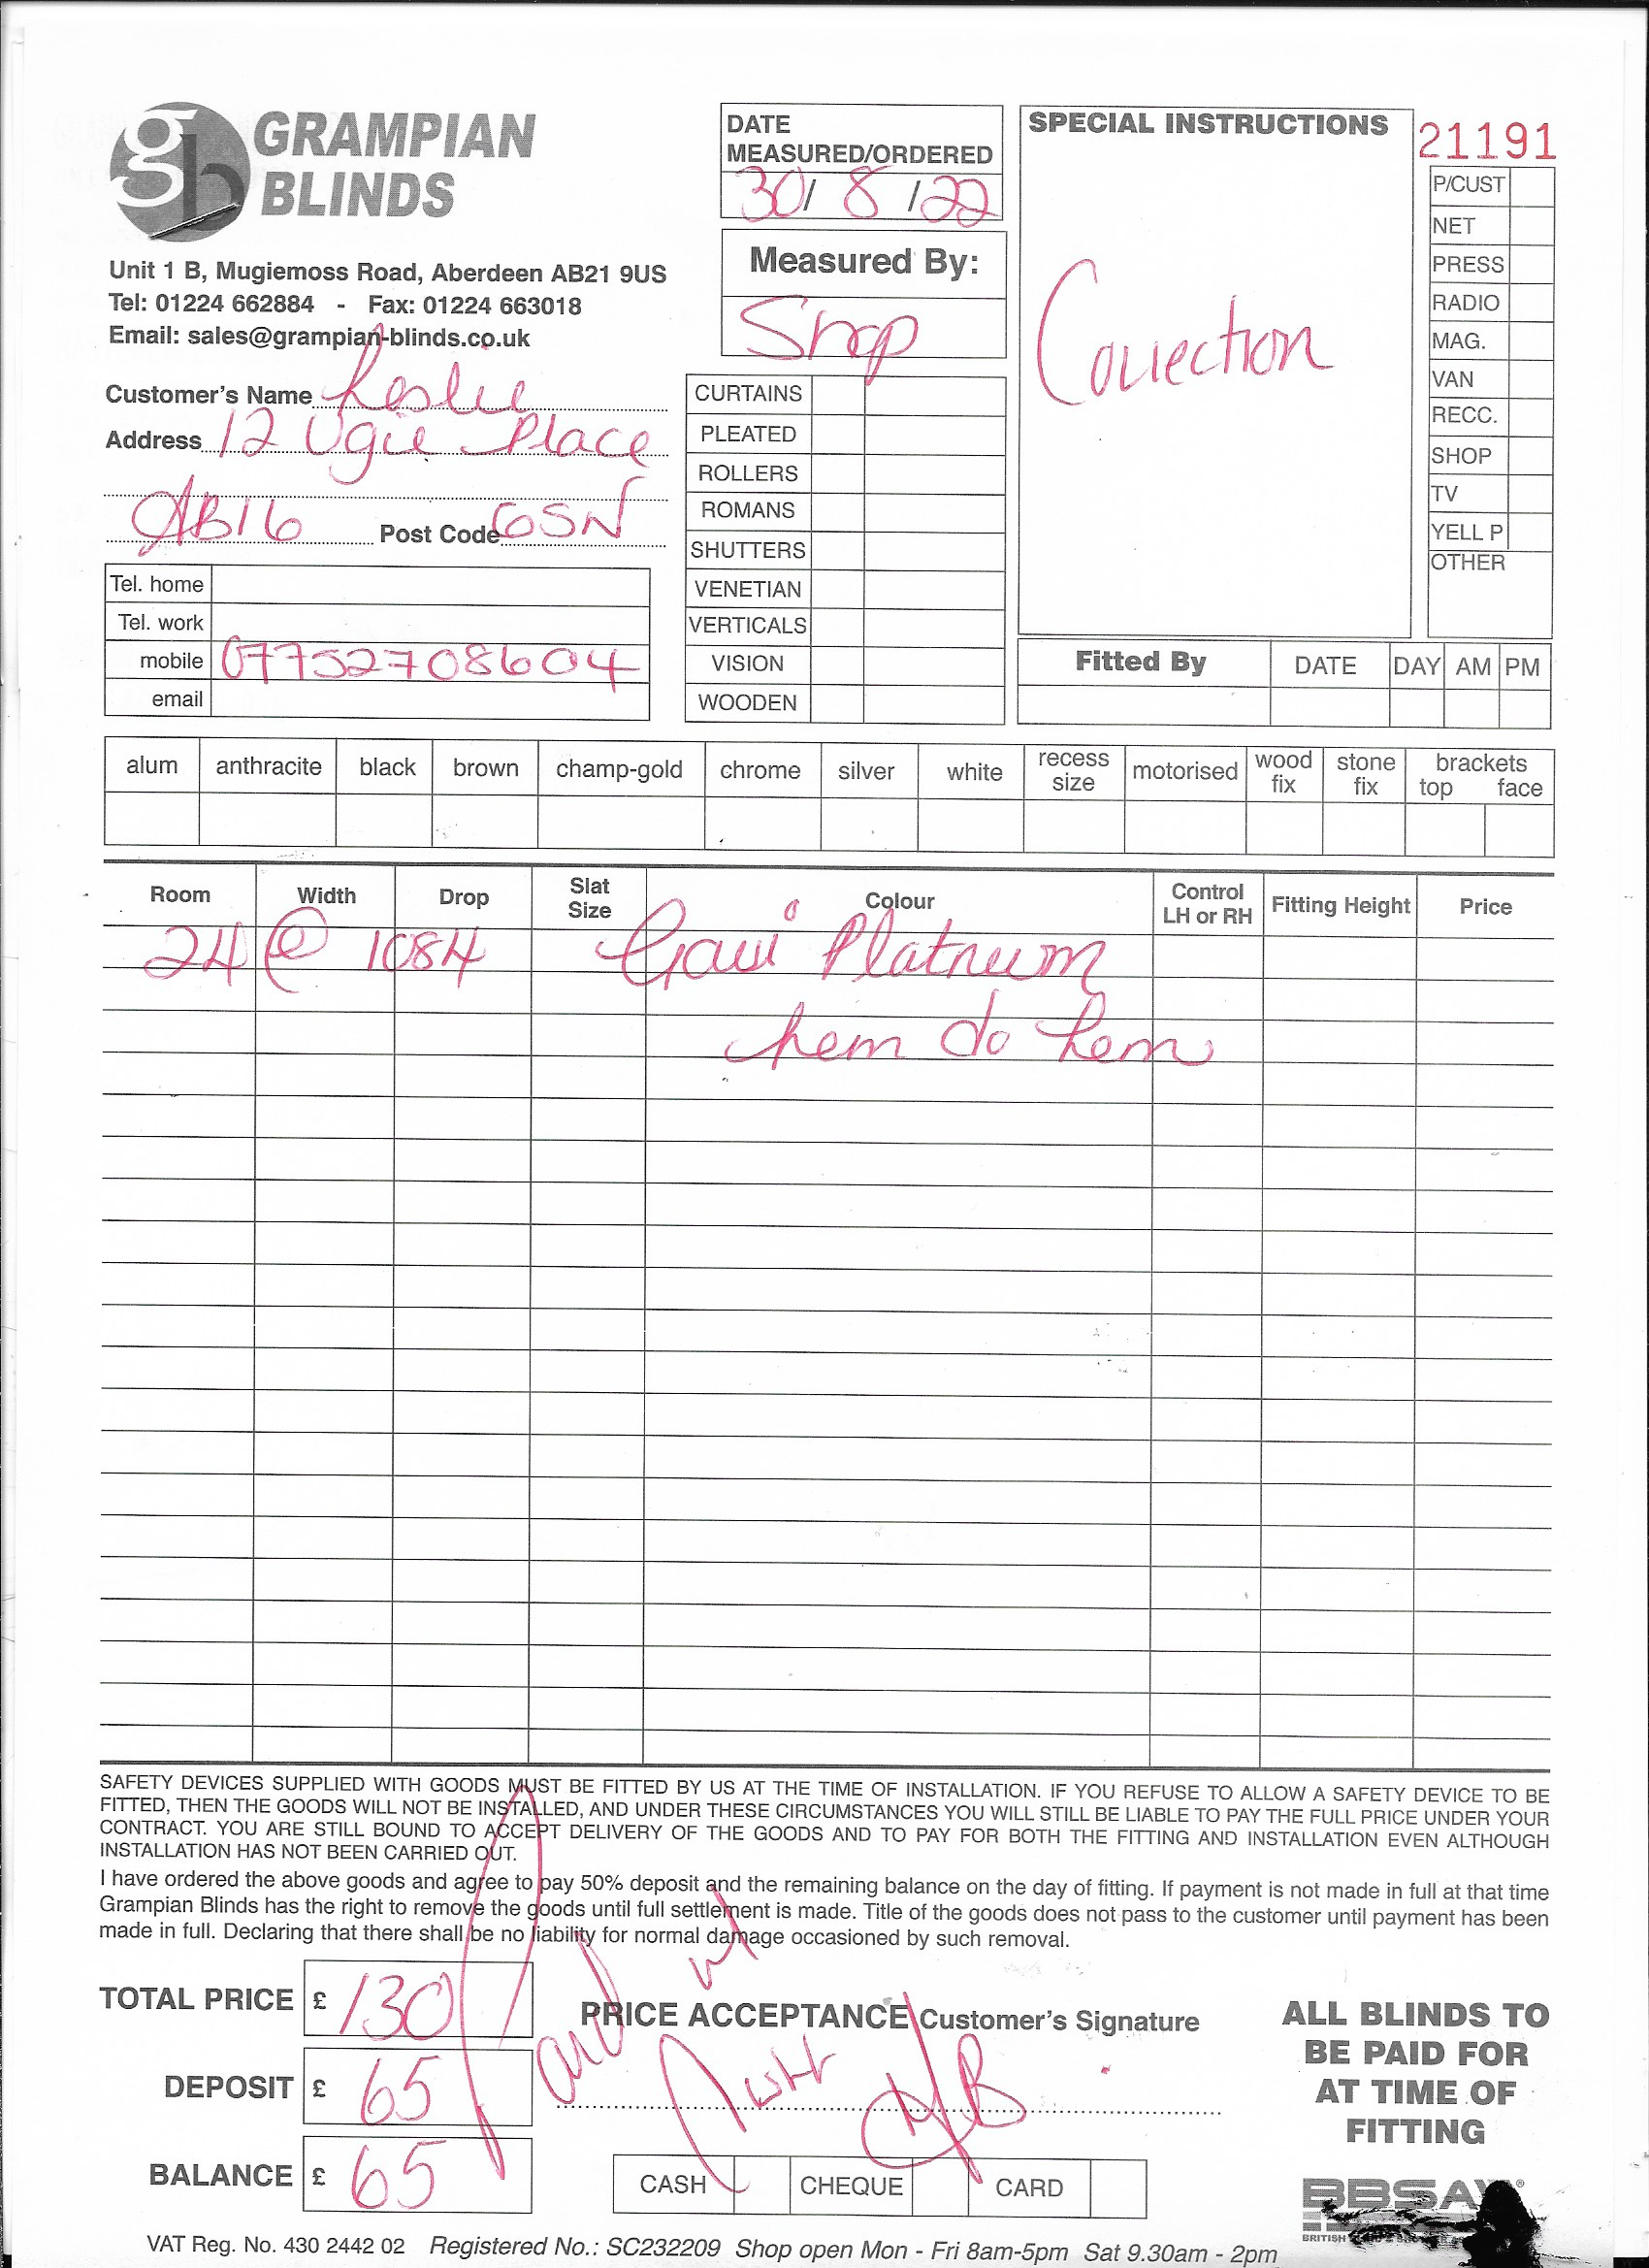 gb GRAMPIAN
BLINDS
Unit 1 B, Mugiemoss Road, Aberdeen AB21 9US
Tel: 01224 662884 - Fax: 01224 663018
Email: sales@grampian-blinds.co.uk
Customer's Name Leslie
Address 12 Ugie Place
AB16 Post Code 6SN
Tel. home
Tel. work
mobile 07752708604
email
DATE
MEASURED/ORDERED
30/ 8 /22
Measured By:
Shop
CURTAINS
PLEATED
ROLLERS
ROMANS
SHUTTERS
VENETIAN
VERTICALS
VISION
WOODEN
SPECIAL INSTRUCTIONS
Collection
21191
P/CUST
NET
PRESS
RADIO
MAG.
VAN
RECC.
SHOP
TV
YELL P
OTHER
Fitted By DATE DAY AM PM
alum anthracite black brown champ-gold chrome silver white recess size motorised wood fix stone fix brackets top face
Room Width Drop Slat Size Colour Control LH or RH Fitting Height Price
24 @ 1084 Platneum
hem do hem
SAFETY DEVICES SUPPLIED WITH GOODS MUST BE FITTED BY US AT THE TIME OF INSTALLATION. IF YOU REFUSE TO ALLOW A SAFETY DEVICE TO BE
FITTED, THEN THE GOODS WILL NOT BE INSTALLED, AND UNDER THESE CIRCUMSTANCES YOU WILL STILL BE LIABLE TO PAY THE FULL PRICE UNDER YOUR
CONTRACT. YOU ARE STILL BOUND TO ACCEPT DELIVERY OF THE GOODS AND TO PAY FOR BOTH THE FITTING AND INSTALLATION EVEN ALTHOUGH
INSTALLATION HAS NOT BEEN CARRIED OUT.
I have ordered the above goods and agree to pay 50% deposit and the remaining balance on the day of fitting. If payment is not made in full at that time
Grampian Blinds has the right to remove the goods until full settlement is made. Title of the goods does not pass to the customer until payment has been
made in full. Declaring that there shall be no liability for normal damage occasioned by such removal.
TOTAL PRICE £ 130
DEPOSIT £ 65
BALANCE £ 65
PRICE ACCEPTANCE Customer's Signature
CASH CHEQUE CARD
ALL BLINDS TO
BE PAID FOR
AT TIME OF
FITTING
BBSA
BRITISH
VAT Reg. No. 430 2442 02 Registered No.: SC232209 Shop open Mon - Fri 8am-5pm Sat 9.30am - 2pm